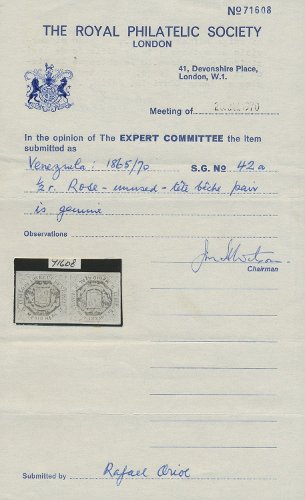 No 71608
THE ROYAL PHILATELIC SOCIETY
LONDON
41, Devonshire Place,
London, W.1.
Meeting of
In the opinion of The EXPERT COMMITTEE the Item
submitted as
Venezuela: 1865/70 S.G. No 42a
½r. Rose - unused - tête bêche pair
is genuine
Observations
Chairman
71608
Submitted by Rafael Oriol